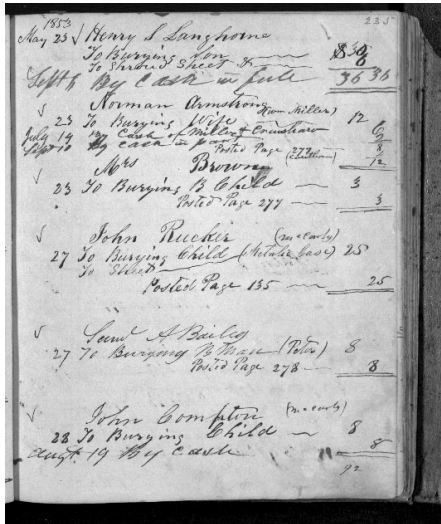 1853 235
May 23 Henry S Langhorne
To Burying Son $30
To Shroud Sheet & 6
Sept 6 By Cash in full 36 36
Norman Armstrong
23 To Burying Wife (Miller) 12
July 19 By Cash of Miller & 6
Sept 10 By Cash in part
Posted Page 277 12
Mrs Brown (Christian)
23 To Burying B Child 3
Posted Page 277 3
John Rucker (McCarty)
27 To Burying Child (Metalic Case) 25
To Sheet
Posted Page 135 25
Saml A Bailey
27 To Burying B Man (Peter) 8
Posted Page 278 8
John Compton
28 To Burying Child 8
Augt 19 By Cash 8
92